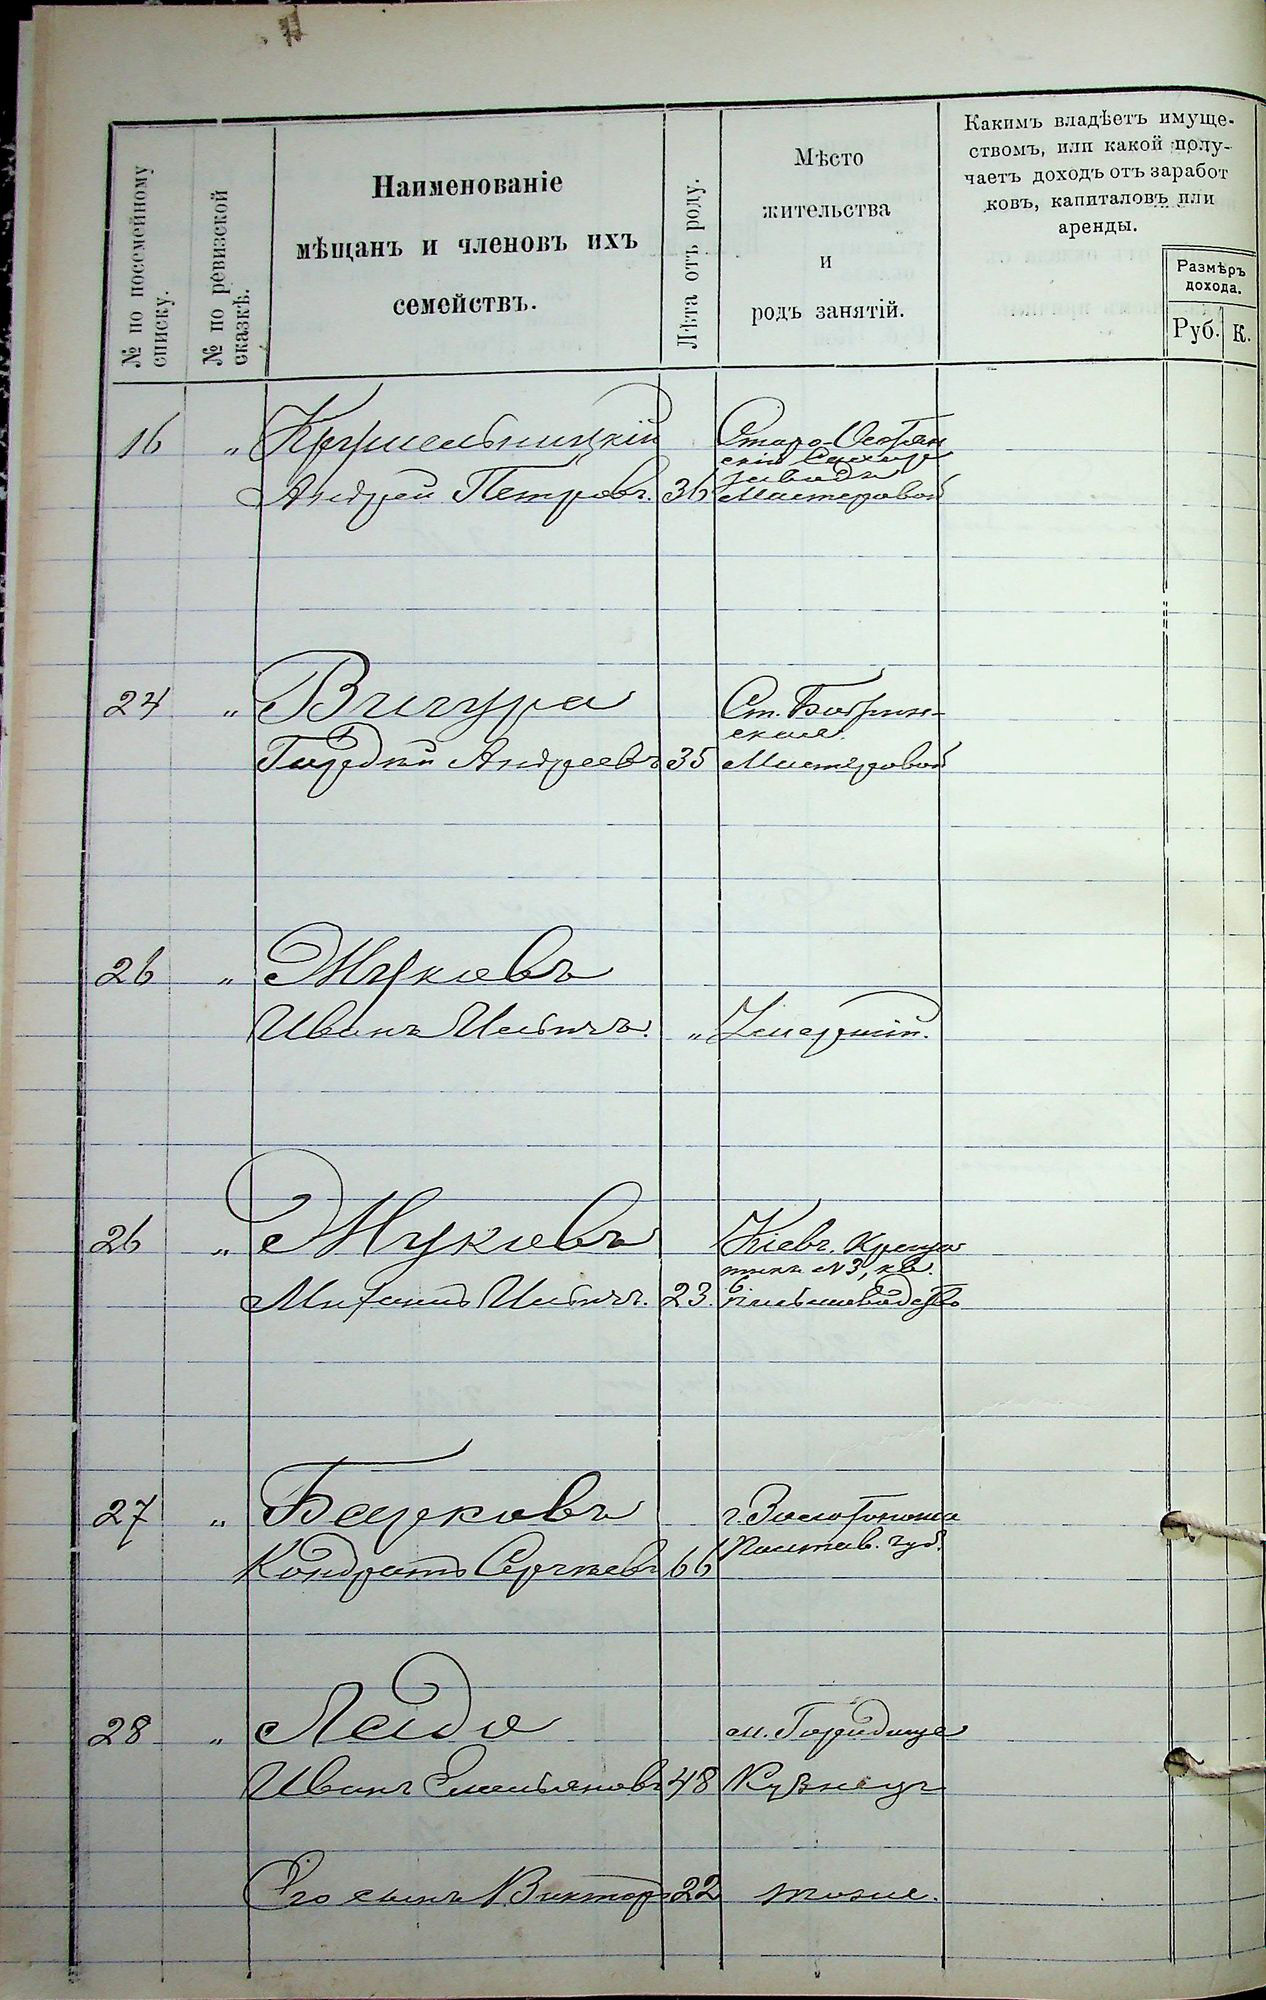 № по посемейному списку.
№ по ревизской сказкѣ.
Наименованіе
мѣщанъ и членовъ ихъ
семействъ.
Лѣта отъ роду.
Мѣсто
жительства
и
родъ занятій.
Какимъ владѣетъ имуще-
ствомъ, или какой полу-
чаетъ доходъ отъ заработ
ковъ, капиталовъ или
аренды.
Размѣръ
дохода.
Руб. К.
16 „ Крушельницкій
Андрей Петровъ. 36 Мастеровой
24 „ Вигура
Гордѣй Андреевъ 35 Мастеровой
Ст. Бобрин-
ская.
26 „ Жуковъ
Иванъ Ильичъ. „ Умершій.
26 „ Жуковъ Кіевъ. Креща-
тикъ №3, кв.
Ильичъ. 23.
27 „ г. Золотоноша
Полтав. губ.
Кондратъ Сергѣевъ 66
28 „ м. Городище
Иванъ Емельяновъ 48 Кузнецъ
Его сынъ Викторъ 22 тоже.